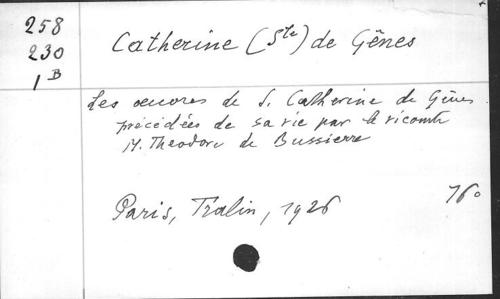 258
230
1B
Catherine (Ste) de Gênes
Les oeuvres de S. Catherine de Gênes
précédées de sa vie par le vicomte
M. Theodore de Bussierre
Paris, Tralin, 1926
16°